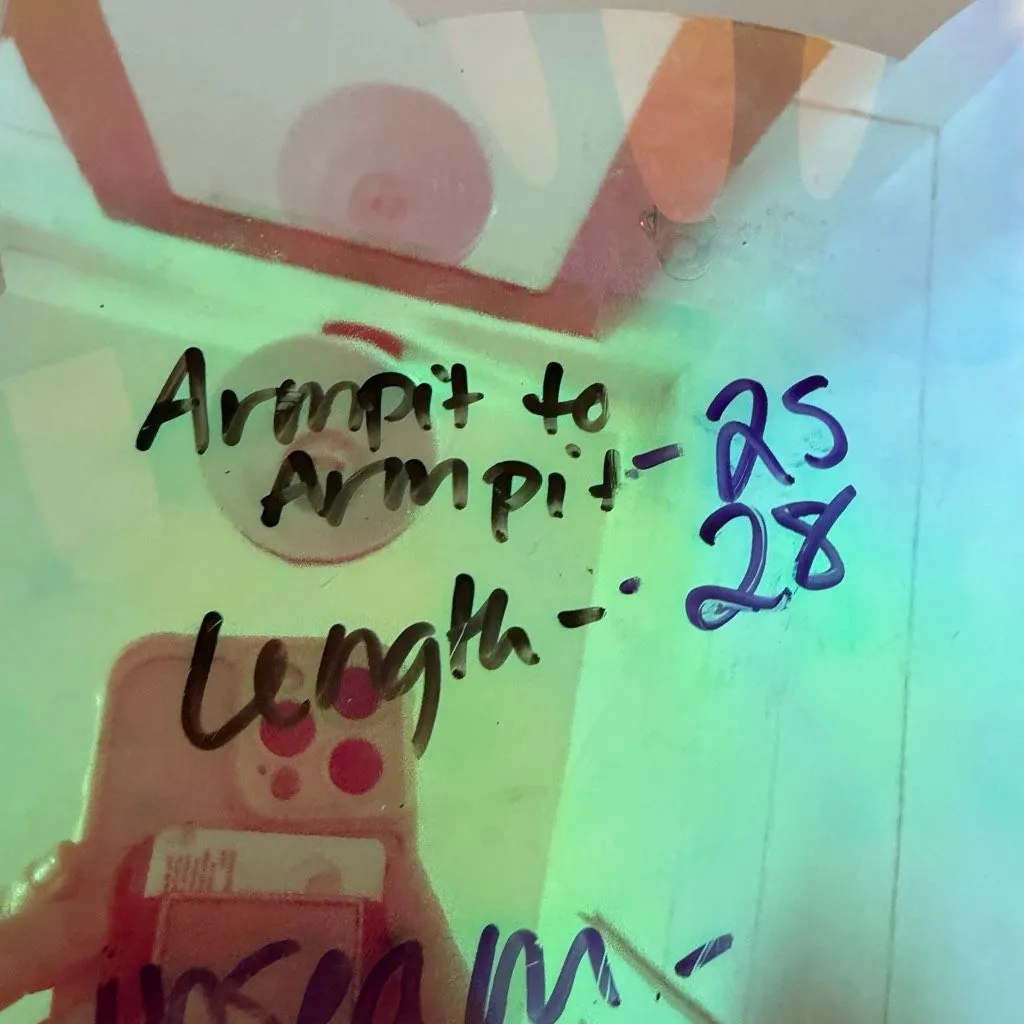 Armpit to
Armpit - 25
Length - 28
inseam -